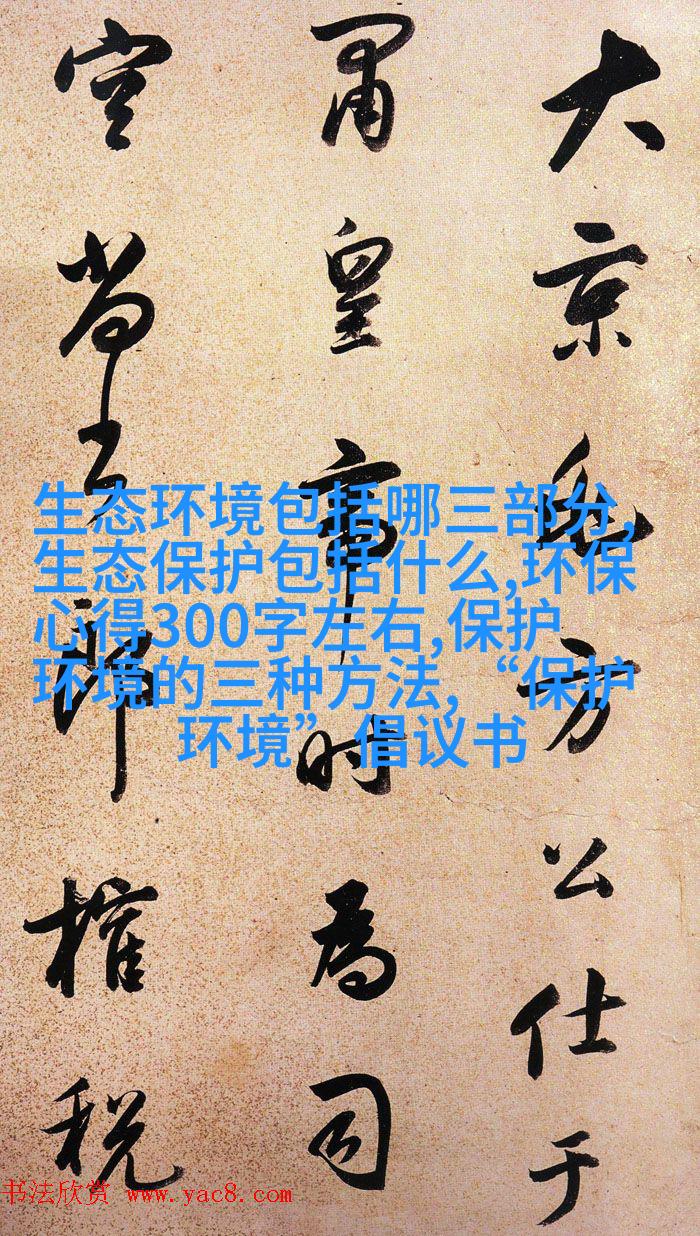 大京兆方公仕于
肅皇帝时為司
空尚書郎榷税
生态环境包括哪三部分,
生态保护包括什么,环保
心得300字左右,保护
环境的三种方法,“保护
环境”倡议书
书法欣赏 www.yac8.com